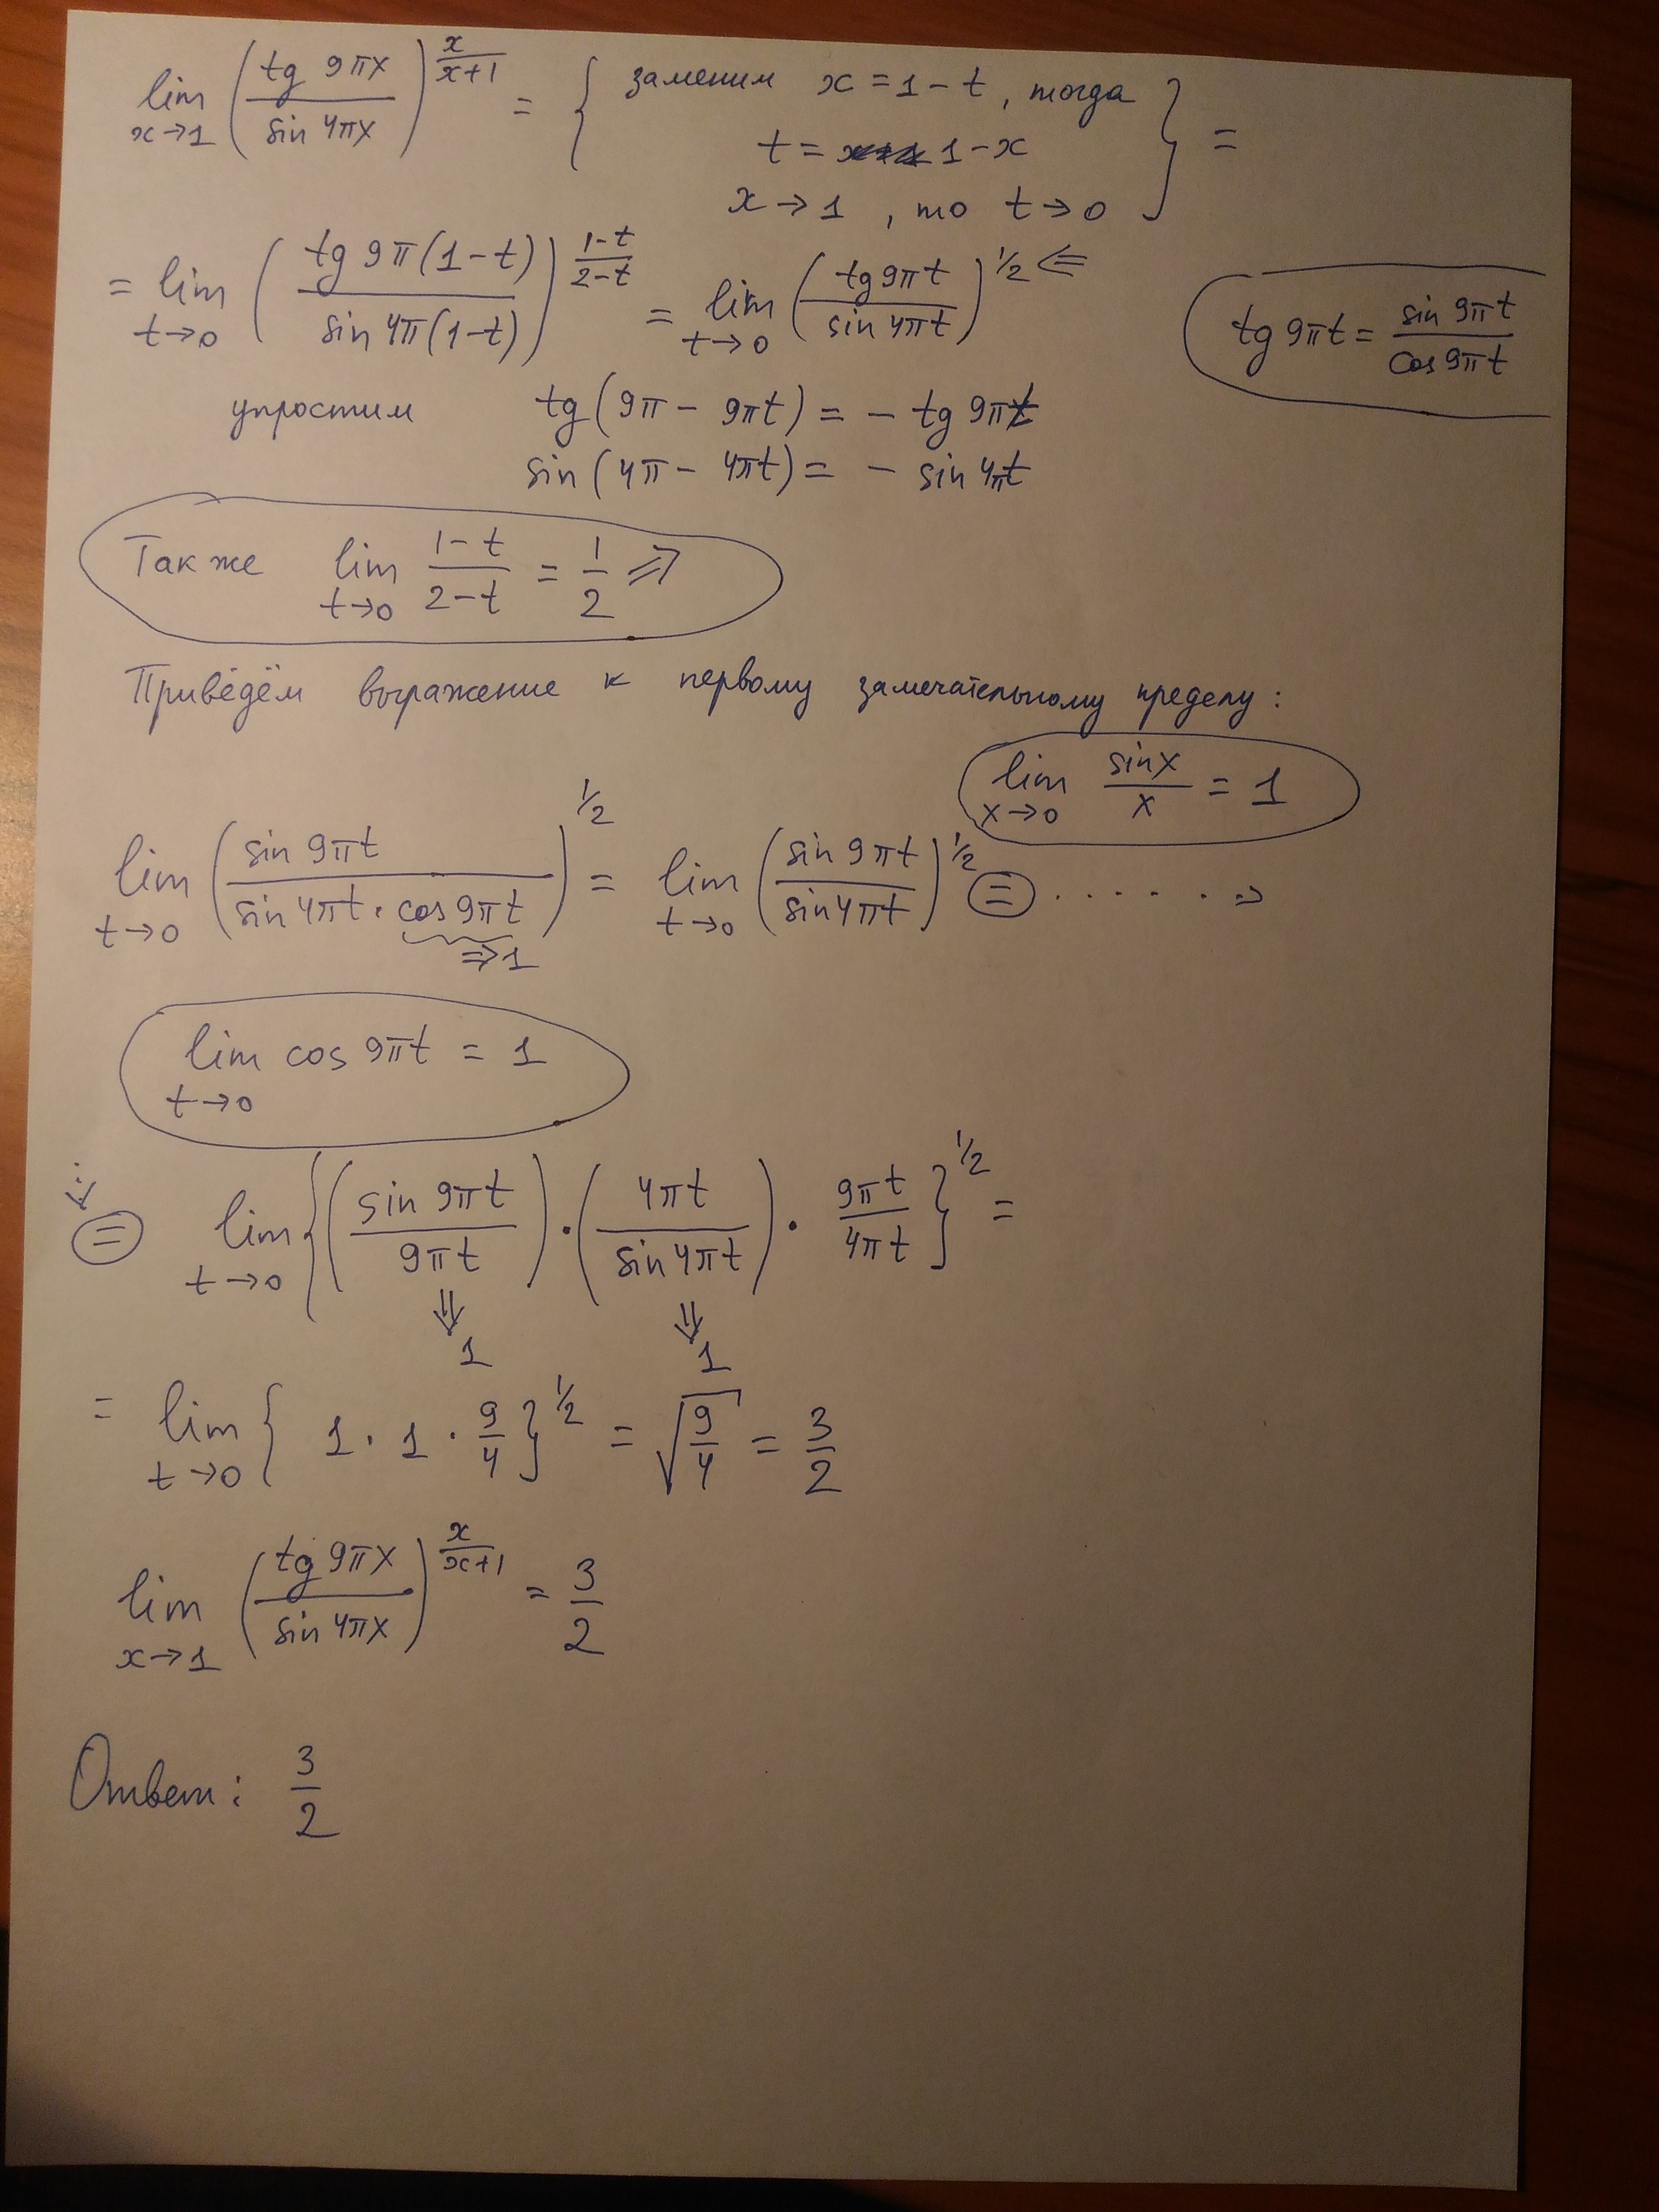 lim x→1 (tg 9πx / sin 4πx)^(x/(x+1)) = { заменим x = 1 - t, тогда
t = 1 - x
x → 1, то t → 0 } =
= lim t→0 (tg 9π(1-t) / sin 4π(1-t))^((1-t)/(2-t)) = lim t→0 (tg 9πt / sin 4πt)^(1/2) ⇐
tg 9πt = sin 9πt / cos 9πt
упростим tg(9π - 9πt) = - tg 9πt
sin(4π - 4πt) = - sin 4πt
Также lim t→0 (1-t)/(2-t) = 1/2 ⇒
Приведём выражение к первому замечательному пределу:
lim x→0 sin x / x = 1
lim t→0 (sin 9πt / (sin 4πt · cos 9πt))^(1/2) = lim t→0 (sin 9πt / sin 4πt)^(1/2) = . . . . . . ⇒
⇒ 1
lim t→0 cos 9πt = 1
= lim t→0 {(sin 9πt / 9πt) · (4πt / sin 4πt) · 9πt / 4πt}^(1/2) =
⇓ ⇓
1 1
= lim t→0 { 1 · 1 · 9/4 }^(1/2) = √(9/4) = 3/2
lim x→1 (tg 9πx / sin 4πx)^(x/(x+1)) = 3/2
Ответ: 3/2